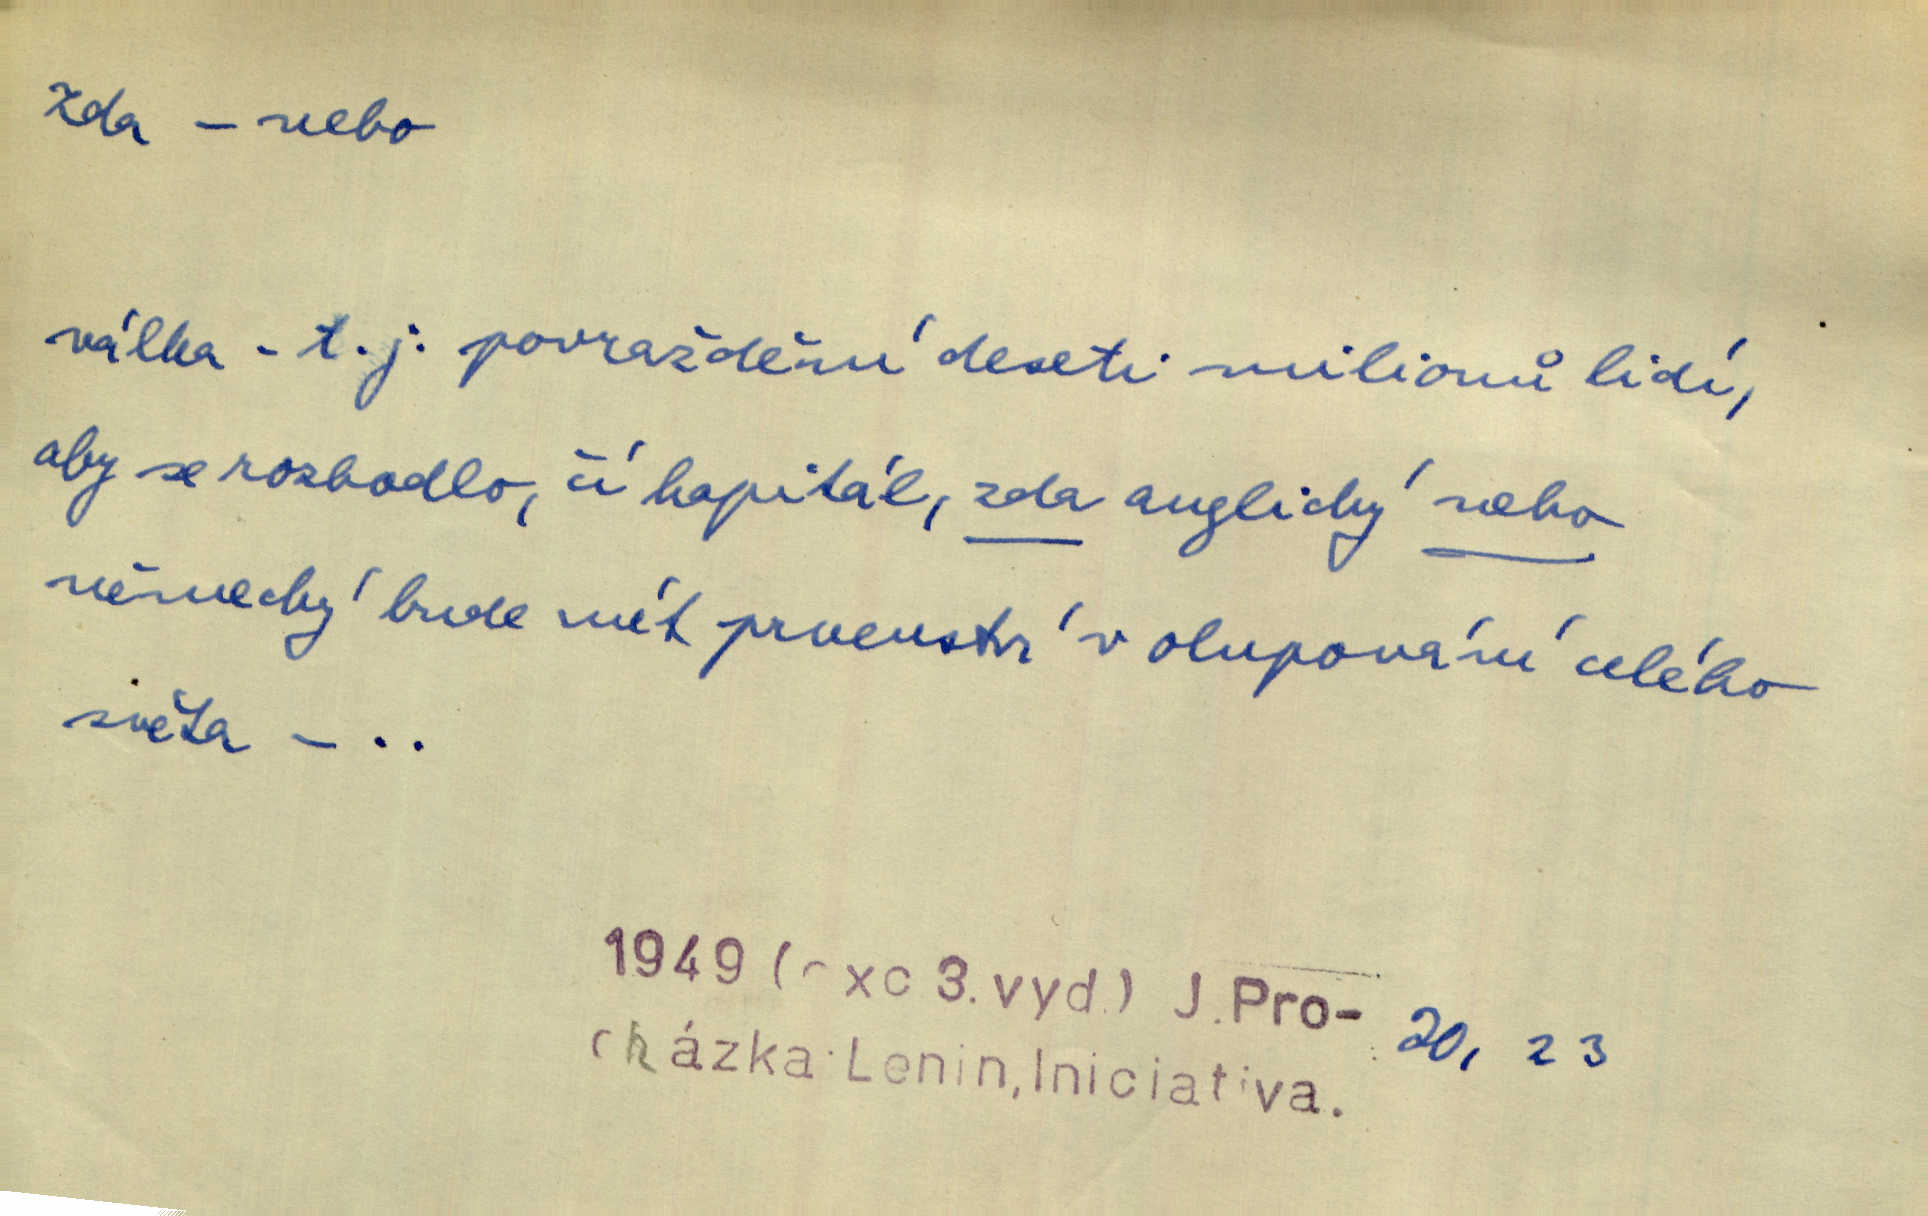 zda - nebo
válka - t.j. povraždění deseti milionů lidí,
aby se rozhodlo, čí kapitál, zda anglický nebo
německý bude mít prvenství v olupování celého
světa - ..
1949 ( xc 3. vyd.) J. Pro-
cházka: Lenin, Iniciativa.
20, 23